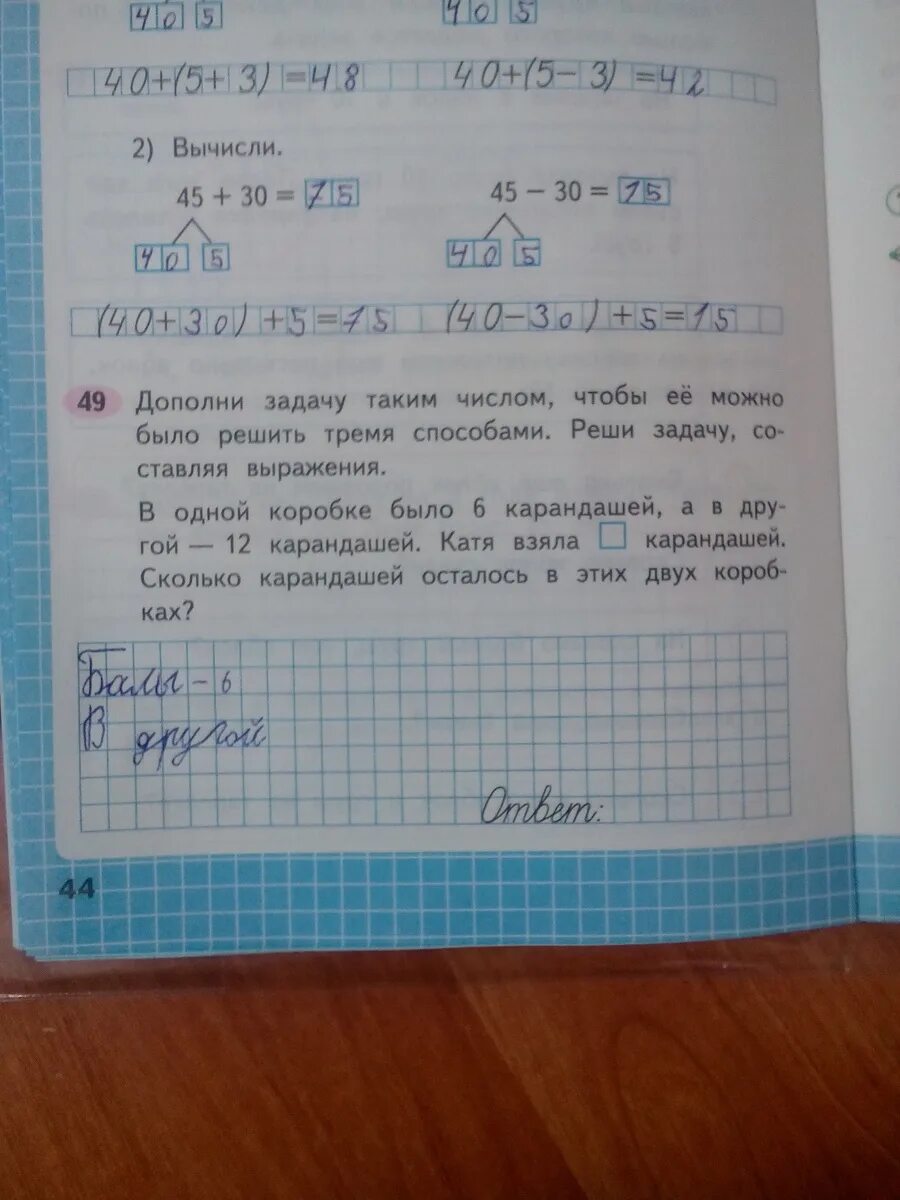 40 5 40 5
40+(5+3)=48 40+(5-3)=42
2) Вычисли.
45 + 30 = 75 45 − 30 = 15
40 5 40 5
(40+30)+5=75 (40-30)+5=15
49 Дополни задачу таким числом, чтобы её можно
было решить тремя способами. Реши задачу, со-
ставляя выражения.
В одной коробке было 6 карандашей, а в дру-
гой — 12 карандашей. Катя взяла □ карандашей.
Сколько карандашей осталось в этих двух короб-
ках?
Балы - 6
В другой
Ответ:
44